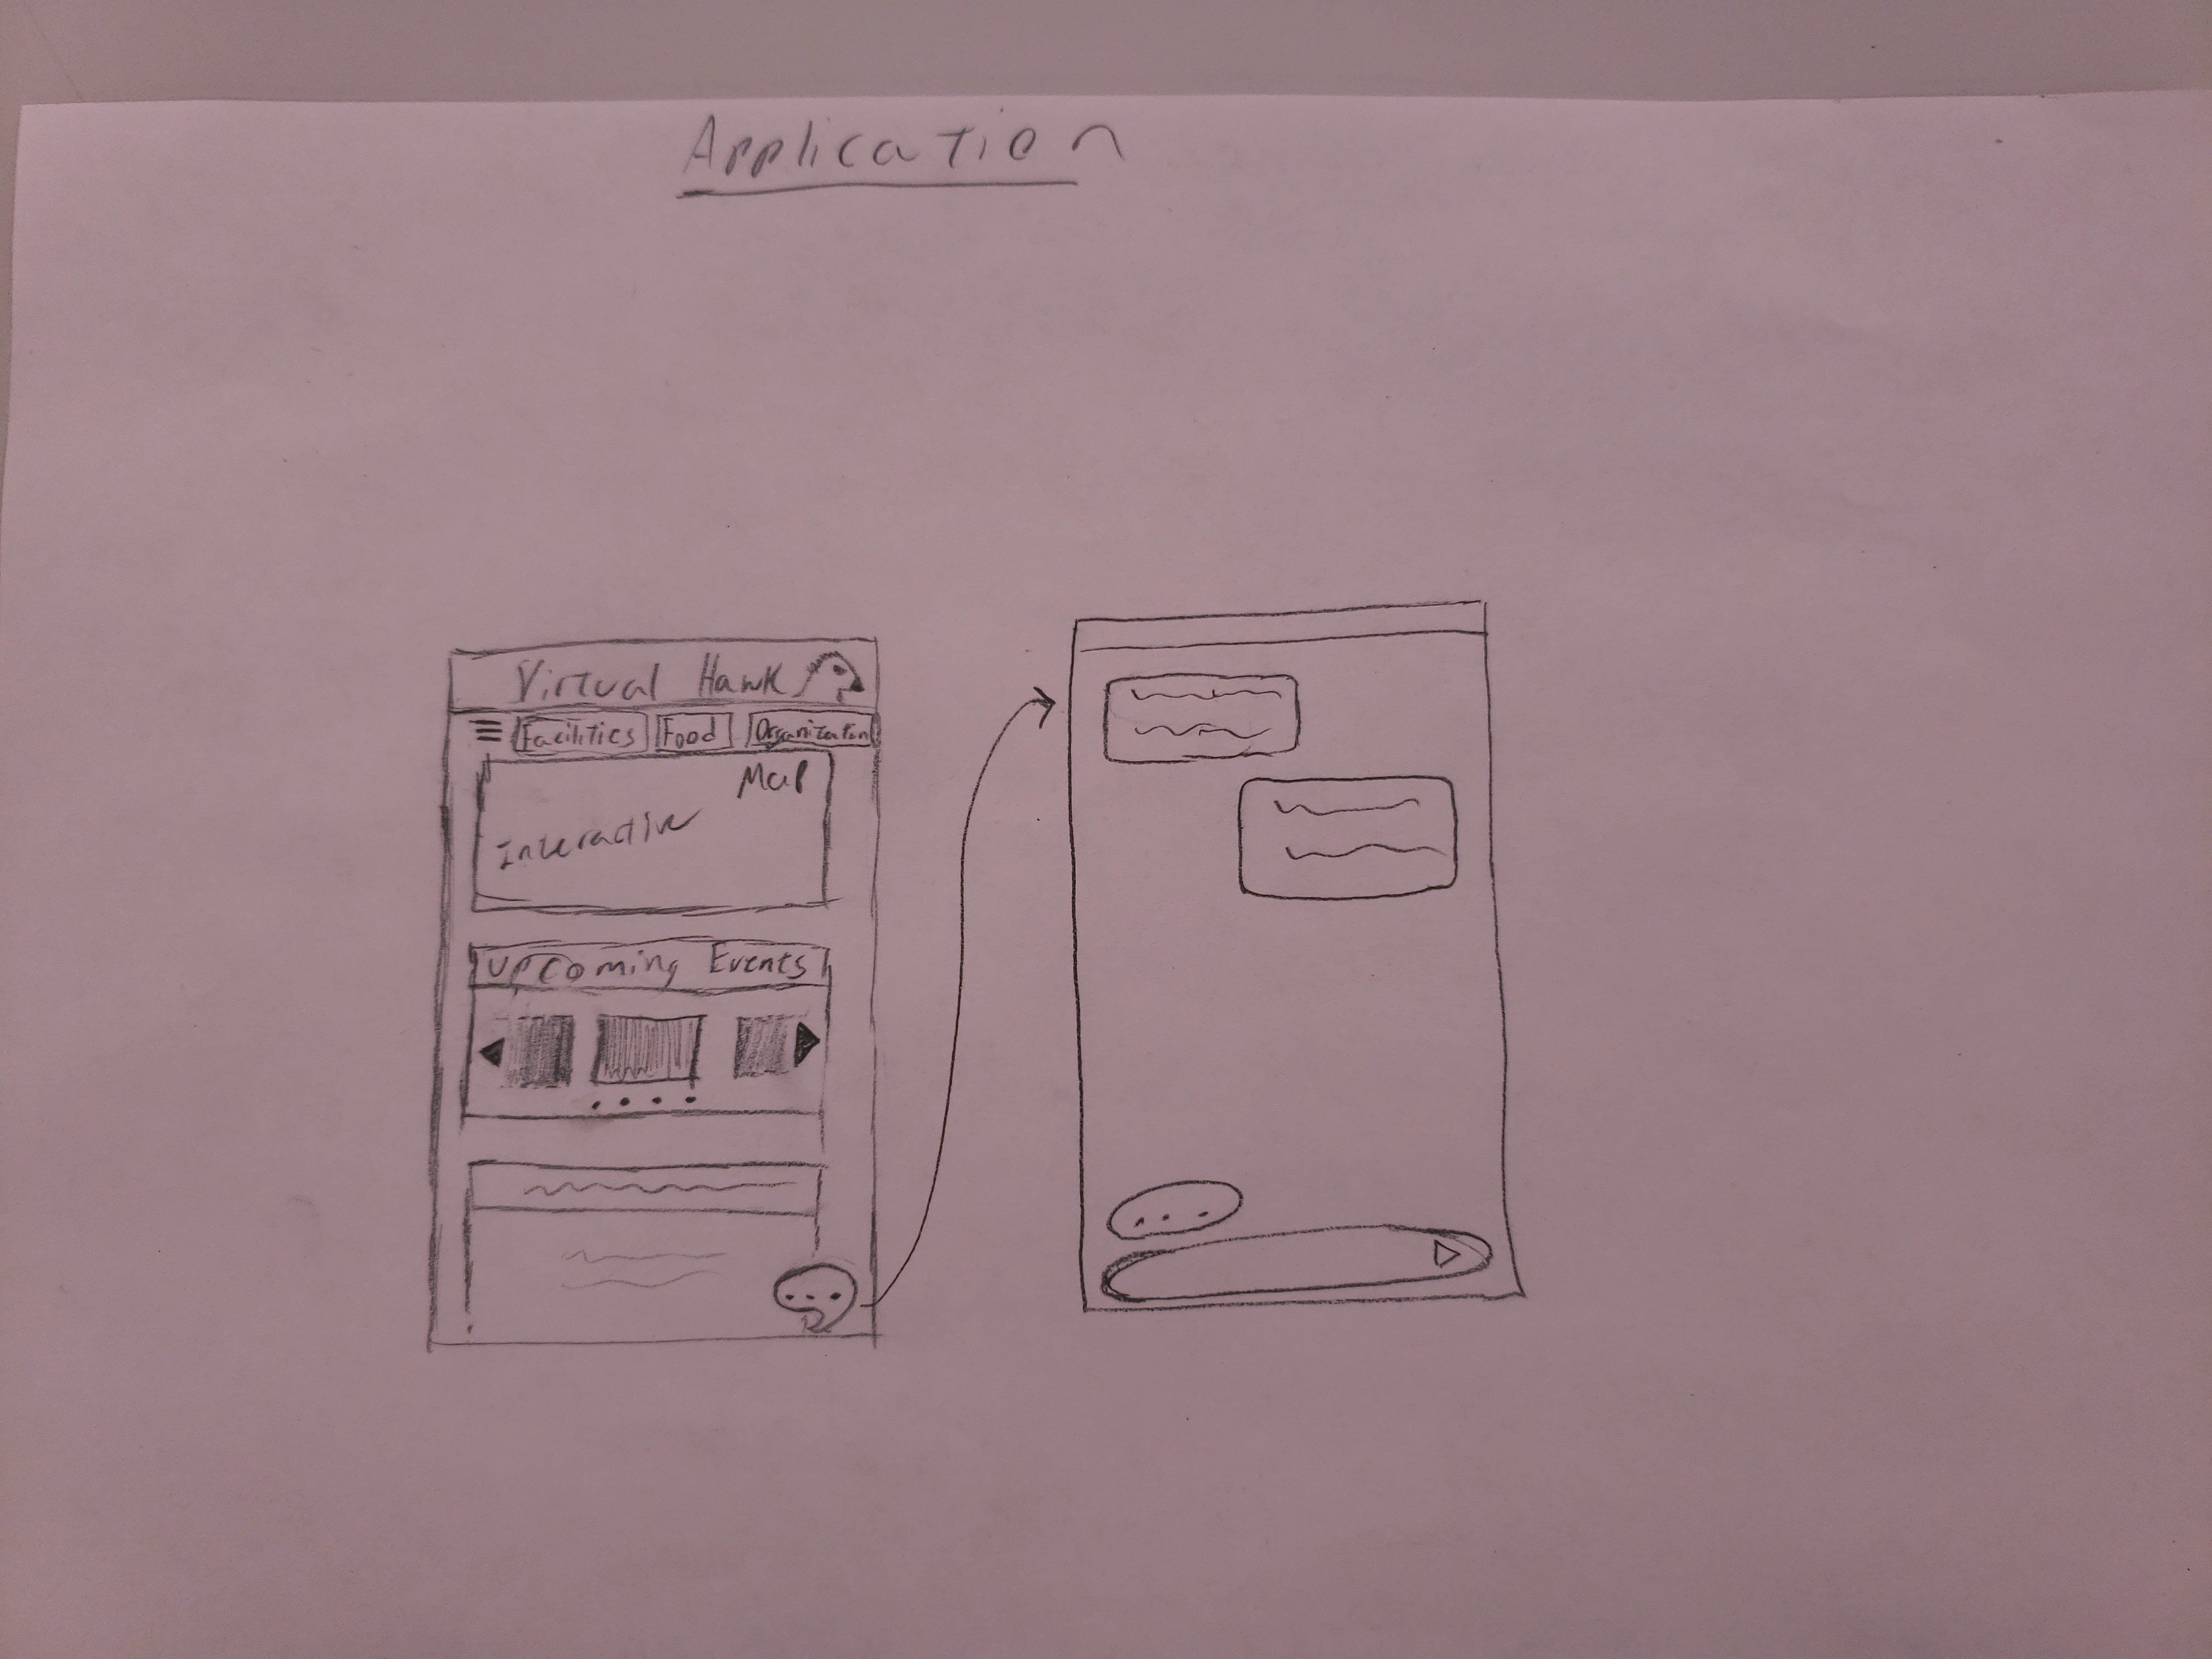 Application
Virtual Hawk
Facilities Food Organization
Map
Interactive
Upcoming Events